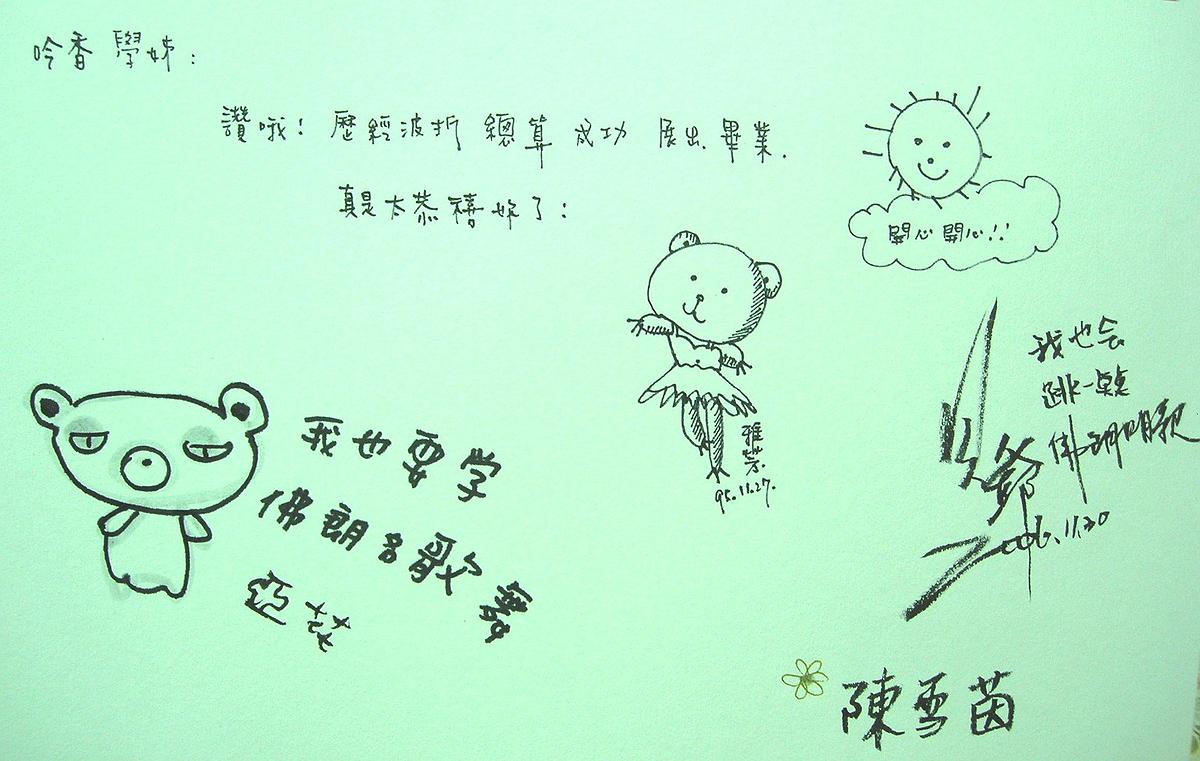 吟香 學姊：
讚哦！歷經波折 總算 成功 展出.畢業.
真是太恭禧妳了：
開心開心!!
我也要学
佛朗多歌舞
亞芯
雅芳.
95.11.27.
我也会
跳一點
佛朗明歌
爺
2006.11.20
陳雪茵